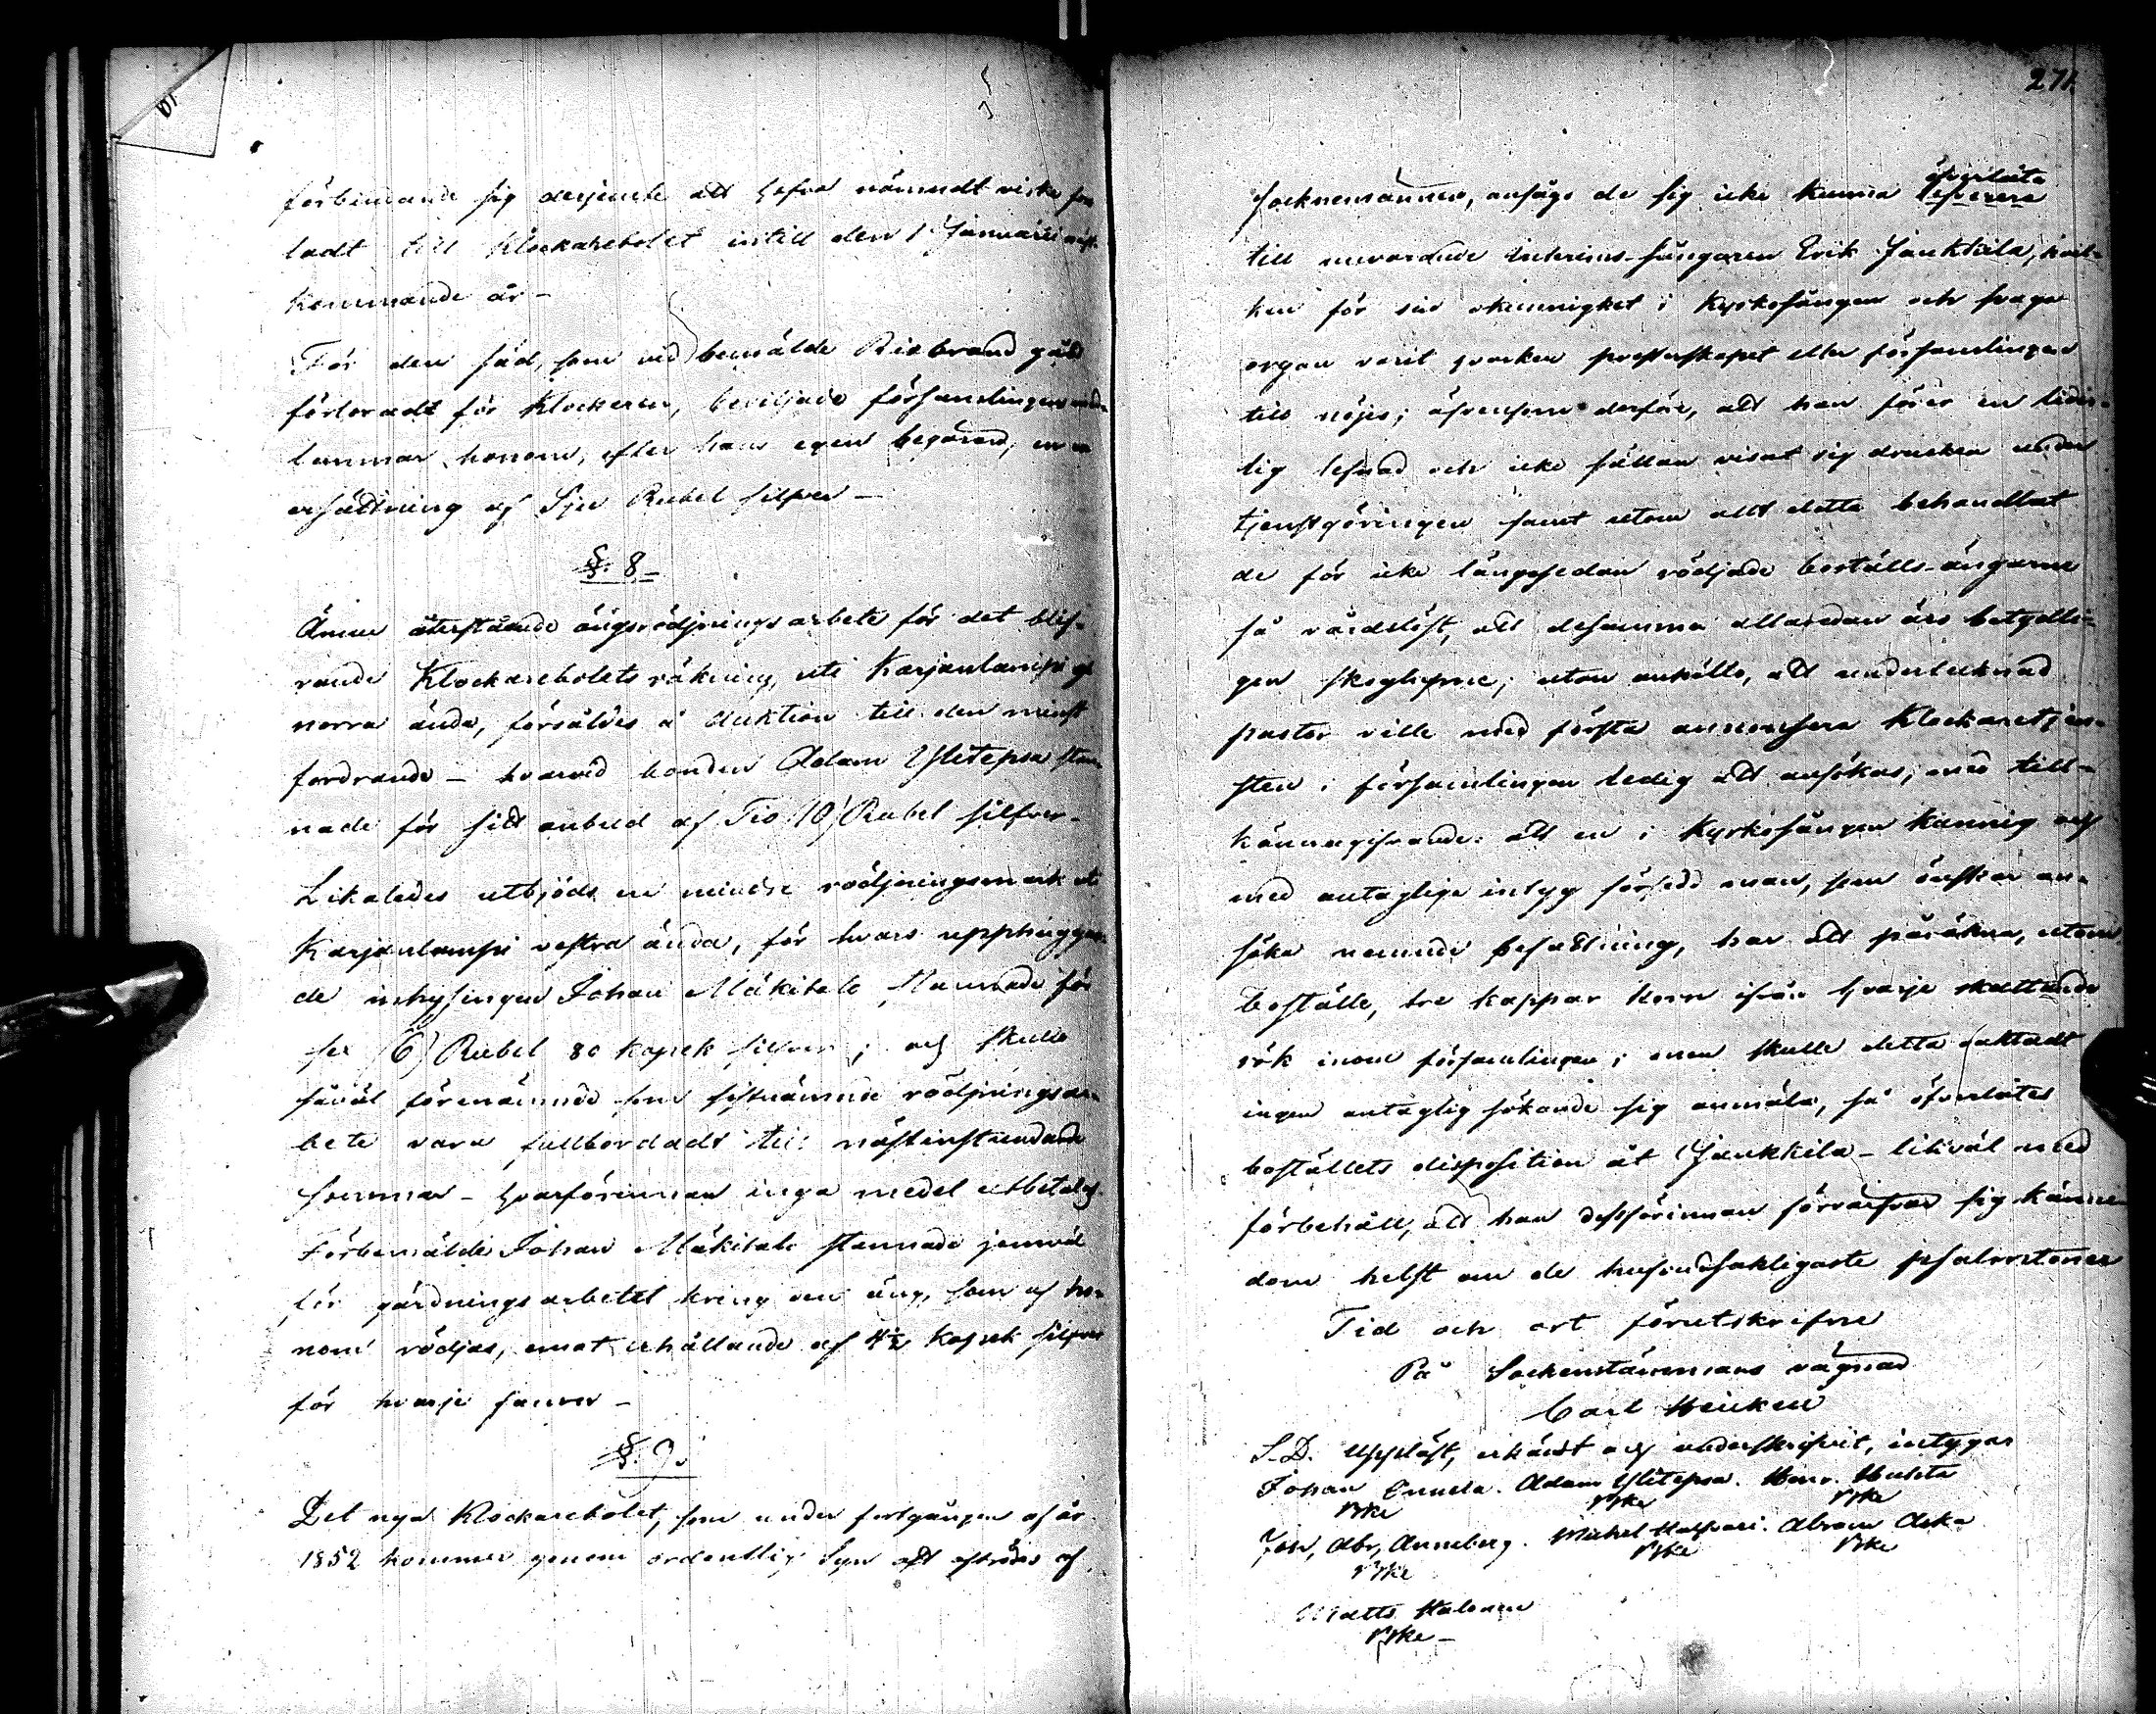 förbindande sig derjemte att hafva nämndt virke fram-
ladt till Klockarebolet intill den 1 Januarii näst
kommande år –
För den säd, som vid bemälde Riebrand gått
förlorad för Klockaren, beviljade församlingens med-
lemmar honom, efter hans egen begäran, en
ersättning af Sju Rubel silfver –
§. 8 –
Ännu återstående ängsrödjningsarbete för det blif-
vande Klockarebolets räkning, uti Karjanlampi
norra ända, försåldes å auktion till den minst
fordrande – hvarvid bonden Adam Ylitepsa stan-
nade för sitt anbud af Tio (10) Rubel silfver –
Likaledes utbjöds en mindre rödjningsmark uti
Karjanlampi vestra ända, för hvars upphuggan-
de inhysingen Johan Mäkitalo stannade för
sex (6) Rubel 80 kopek silfver; och skulle
såväl förenämnde som sistnämnde rödjningsar-
bete vara fullbordadt till nästinstundande
sommar – hvarförinnan inga medel utbetalas.
Förbemälde Johan Mäkitalo stannade jemväl
för gärdningsarbetet kring den äng, som af ho-
nom rödjas, emot erhållande af 4½ kopek silfver
för hvarje famn –
§. 9.
Det nya Klockarebolet, som under fortgången af år
1852 kommer genom ordentlig Syn att afträdas af
271.
öfverlåta
Socknemännen, ansågo de sig icke kunna
till nuvarande interims-sångaren Erik Jaukkila, hvil-
ken för sin okunnighet i Kyrkosången och svaga
organ varit hvarken presterskapet eller församlingen
till nöjes; äfvensom derföre, att han förer en lider-
lig lefnad och icke sällan visat sig drucken under
tjenstgöringen samt utom allt detta behandlat
de för icke längesedan rödjade boställs-ängarne
så vårdslöst, att desamma allaredan äro betydli-
gen skoglupne; utan anhålla, att undertecknad
pastor ville med första annonsera Klockaretjen-
sten i församlingen ledig att ansökas, med till-
kännagifvande: att en i Kyrkosången kunnig och
med antaglige intyg försedd man, som önskar an-
söka nemnde befattning, har att påräkna, utom
boställe, tre kappar korn ifrån hvarje skattande
rök inom församlingen; men skulle detta oaktadt
ingen antaglig sökande sig anmäla, så öfverlåtes
boställets disposition åt Jaukkila – likväl med
förbehåll, att han dessförinnan förvärfvar sig känne-
dom helst om de hufvudsakligaste psalmtoner
Tid och ort förutskrifne
På Sockenstämmans vägnar
Carl Heiken
S. D. Uppläst, erkändt och underskrifvit, intygar
Johan Onnela. Adam Ylitepsa. Henr. Huhta
Joh, Abr, Anneberg. Michel Abram Aska
Matts Halonen